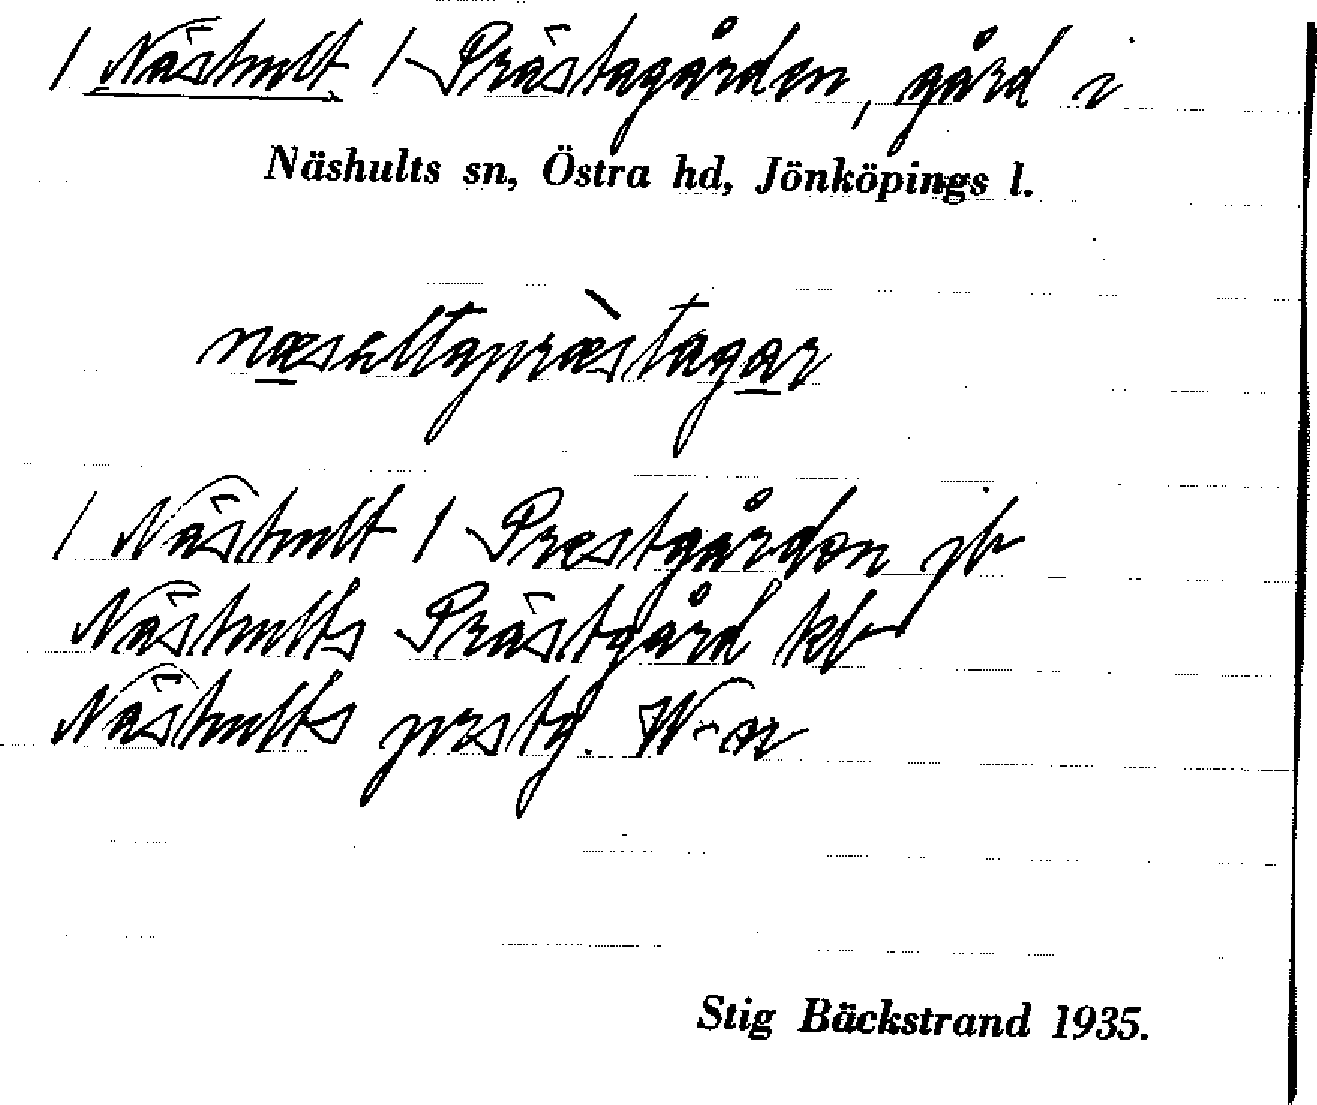 / Näshult / Prästagården, gård i
Näshults sn, Östra hd, Jönköpings l.
næsɛltapræ̀stagar
/ Näshult / Prestgården jb
Näshults Prästgård kb
Näshults prstg.
Stig Bäckstrand 1935.